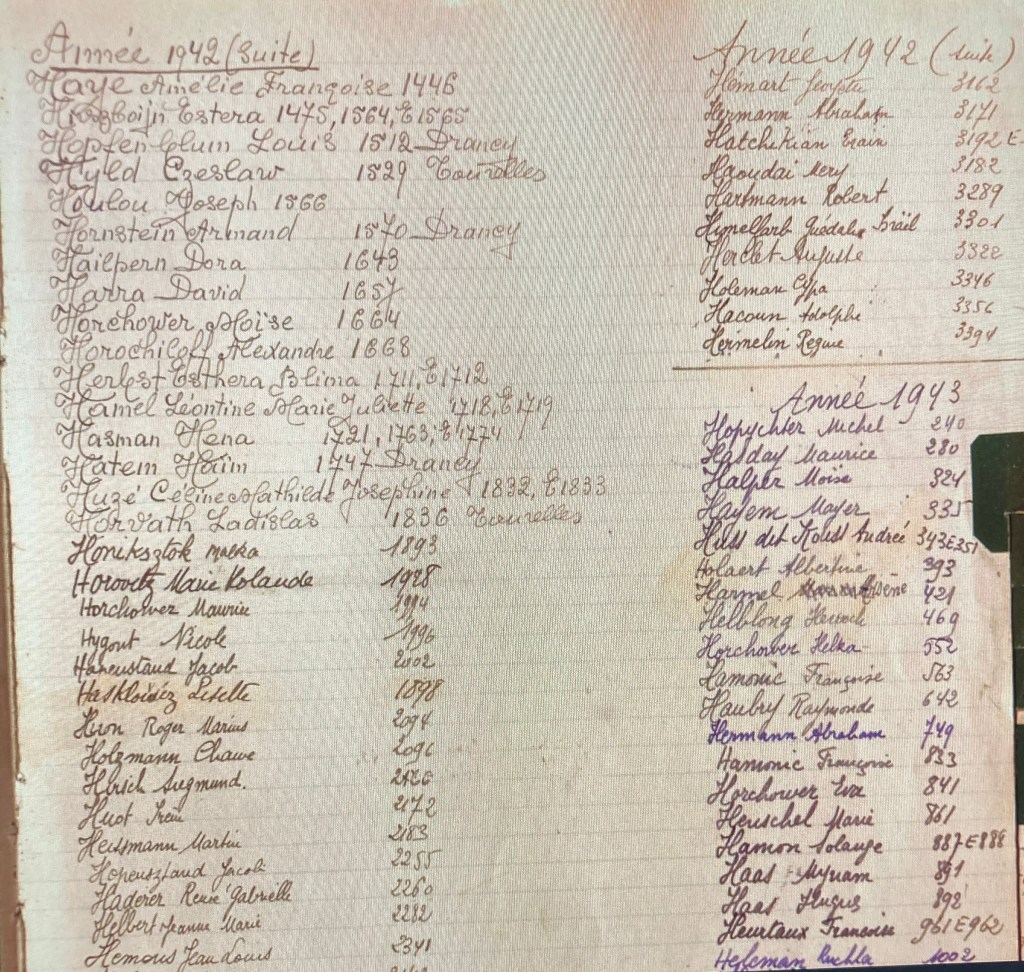 Année 1942 (Suite)
Haye Amélie Françoise 1446
Estera 1475, 1564, E1565
Hopfenblum Louis 1512 Drancy
Hyld Czeslaw 1529 Tourelles
Houlou Joseph 1566
Hornstein Armand 1570 Drancy
Hailpern Dora 1643
Harra David 1657
Horchower Moïse 1664
Horochiloff Alexandre 1668
Herbst Esthera Blima 1711, E1712
Hamel Léontine Marie Juliette 1718, E1719
Hasman Hena 1721, 1763, E1774
Hatem Haïm 1747 Drancy
Huzé Céline Mathilde Josephine 1832, E1833
Horvath Ladislas 1836 Tourelles
Honiksztok Malka 1893
Horovitz Marie Yolande 1928
Horchower Maurice 1994
Hygout Nicole 1996
Hanenstaud Jacob 2002
Lisette 1898
Huon Roger Marius 2094
Holzmann Chawe 2096
Hirsch Siegmund. 2126
Huot 2172
Heissmann Martin 2183
Hopensztaud Jacob 2255
Haderer Renée Gabrielle 2260
Helbert Jeanne Marie 2282
Hemous Jean Louis 2341
Année 1942 (suite)
Hemart 3162
Hermann Abraham 3171
Hatchikian 3192 E
Haoudai Mery 3182
Hartmann Robert 3289
Himelfarb Guédale Israël 3301
Herclet Auguste 3322
Holeman 3346
Hacoun Adolphe 3356
Hermelin Regine 3394
Année 1943
Hopychter Michel 240
Hasday Maurice 280
Halper Moïse 324
Hayem Mayer 335
Huss dit Andrée 343E351
Holaert Albertine 393
Harmel Arsène 421
Helblong 469
Horchower Helka 552
Hamonic Françoise 563
Haubry Raymonde 642
Hermann Abraham 749
Hamonic Françoise 833
Horchower Eva 841
Henschel Marie 861
Hamon Solange 887E888
Haas Myriam 891
Haas Hugus 892
Heurtaux Francoise 961E962
Ruchla 1002